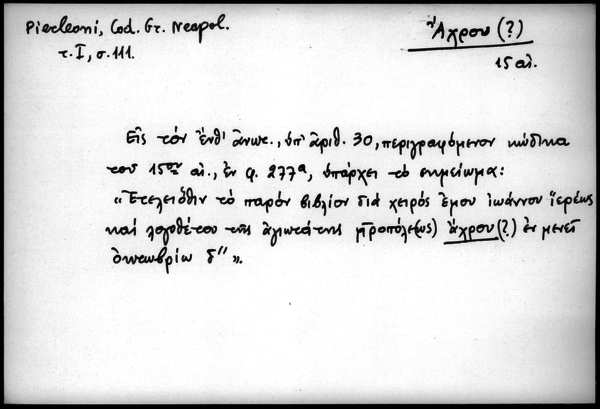 Pierleoni, Cod. Gr. Neapol.
τ. I, σ. 111.
Ἄχρου (?)
15 αἰ.
Εἰς τὸν ἐνθ' ἄνωτ., ὑπ' ἀριθ. 30, περιγραφόμενον κώδικα
τοῦ 15ου αἰ., ἐν φ. 277α, ὑπάρχει τὸ σημείωμα:
«Ἐτελειόθην τὸ παρὸν βιβλίον διὰ χειρὸς ἐμοῦ ἰωάννου ἱερέως
καὶ λογοθέτου τῆς ἁγιωτάτης μ̅ροπόλε(ως) ἄχρου (?) ἐν μενεὶ
ὀκτωβρίω δ'' ».